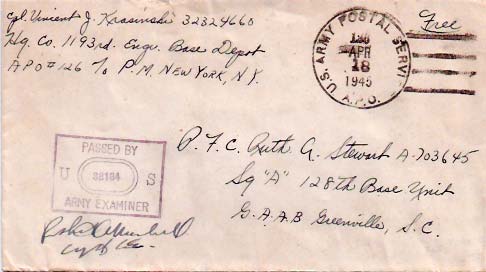 Cpl. Vincent J. Krasinski 32324660
Hq. Co. 1193rd. Engr. Base Depot
A P O # 126 % P. M. NEW YORK, N.Y.
Free
U.S. ARMY POSTAL SERVI
130
APR
18
1945
A.P.O.
PASSED BY
U 38184 S
ARMY EXAMINER
P. F. C. Ruth A. Stewart A-703645
Sq "A" 128th Base Unit
G. A. A. B. Greenville, S. C.